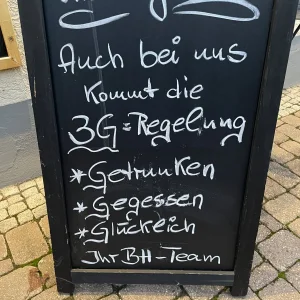 Auch bei uns
kommt die
3G=Regelung
*Getrunken
*Gegessen
*Glücklich
Ihr BH-Team